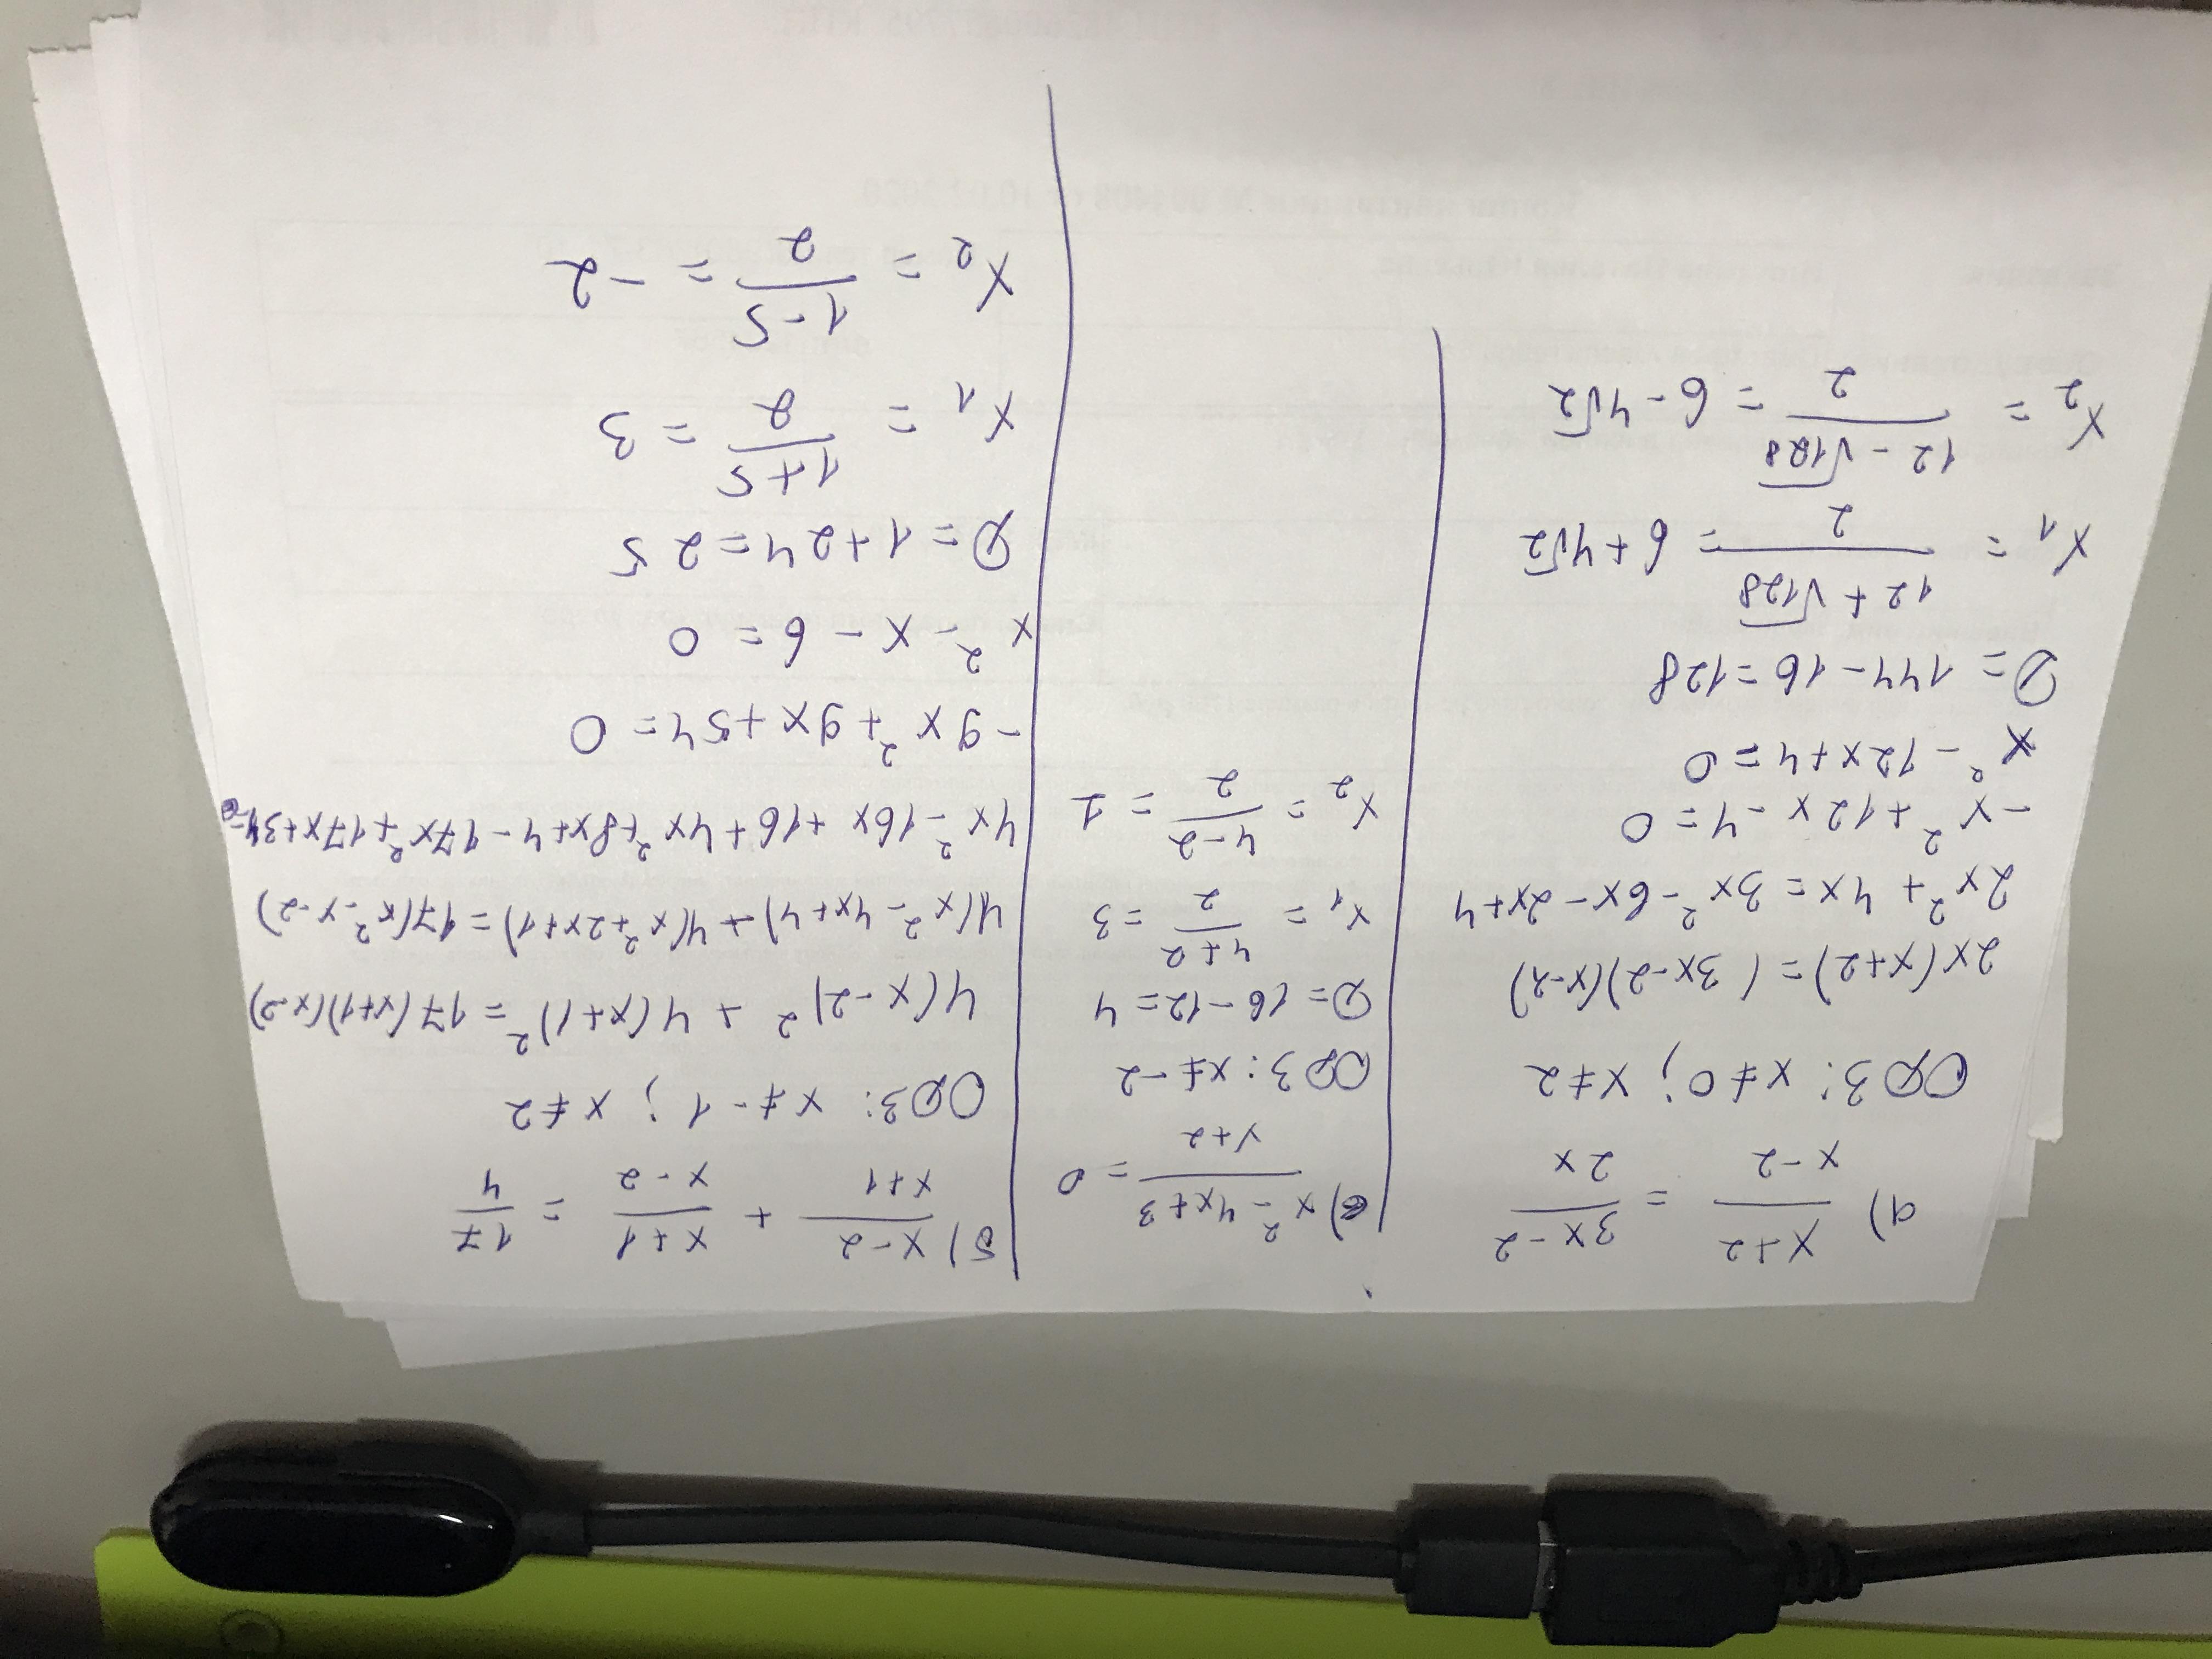 а) (x+2)/(x-2) = (3x-2)/(2x)
ОДЗ: x≠0; x≠2
2x(x+2)=(3x-2)(x-2)
2x²+4x=3x²-6x-2x+4
-x²+12x-4=0
x²-12x+4=0
D=144-16=128
x₁ = (12+√128)/2 = 6+4√2
x₂ = (12-√128)/2 = 6-4√2
в) (x²-4x+3)/(x+2) = 0
ОДЗ: x≠-2
D=16-12=4
x₁ = (4+2)/2 = 3
x₂ = (4-2)/2 = 1
б) (x-2)/(x+1) + (x+1)/(x-2) = 17/4
ОДЗ: x≠-1; x≠2
4(x-2)²+4(x+1)²=17(x+1)(x-2)
4(x²-4x+4)+4(x²+2x+1)=17(x²-x-2)
4x²-16x+16+4x²+8x+4-17x²+17x+34=0
-9x²+9x+54=0
x²-x-6=0
D=1+24=25
x₁ = (1+5)/2 = 3
x₂ = (1-5)/2 = -2